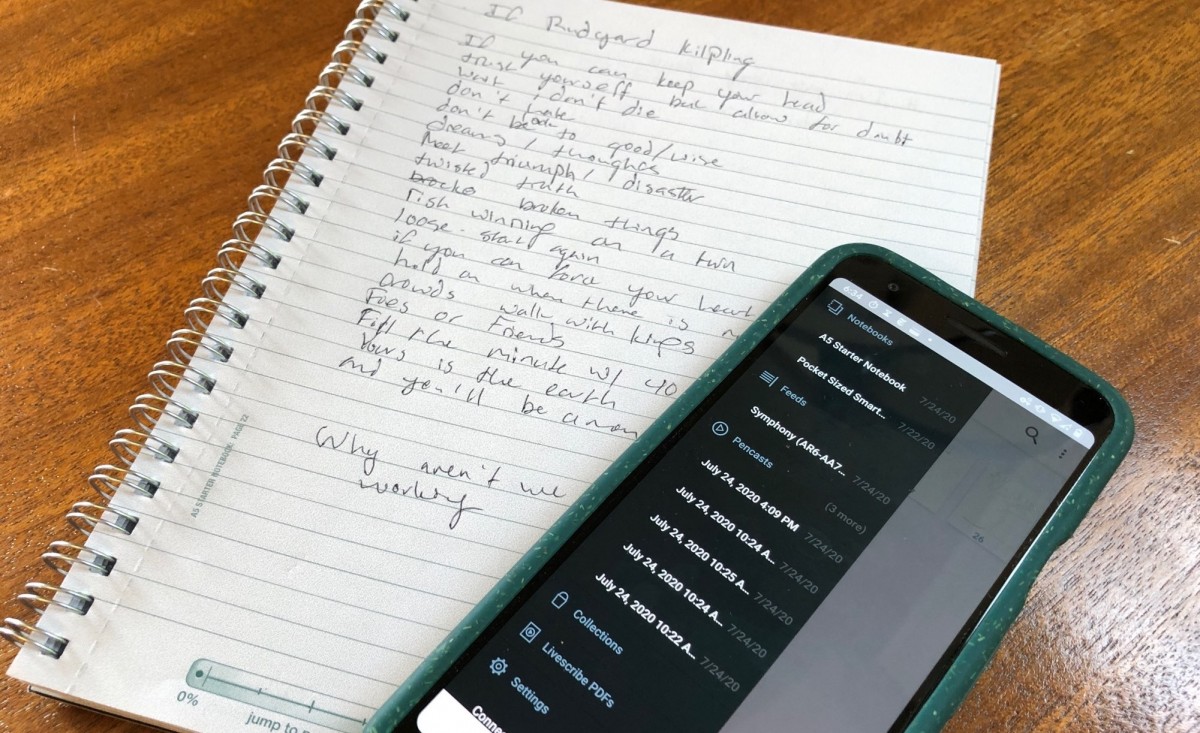 If Rudyard Kilpling
If you can keep your head
trust yourself but allow for doubt
wait / don't die
don't hate
don't look to good/wise
dreams / thoughts
Meet triumph / disaster
twisted truth
broken things
risk winning on a turn
loose - start again
if you can force your heart
hold on when there is n
crowds walk with kings
Foes or Friends
Fill the minute w/ 40
Yours is the earth
and you'll be a man
Why aren't we
working
A5 STARTER NOTEBOOK PAGE 22
0%
jump to
6:34
Notebooks
A5 Starter Notebook 7/24/20
Pocket Sized Smart... 7/22/20
Feeds
Symphony (AR6-AA7... 7/24/20
Pencasts (3 more)
July 24, 2020 4:09 PM 7/24/20
July 24, 2020 10:24 A... 7/24/20
July 24, 2020 10:25 A... 7/24/20
July 24, 2020 10:24 A... 7/24/20
July 24, 2020 10:22 A... 7/24/20
Collections
Livescribe PDFs
Settings
Conne
26